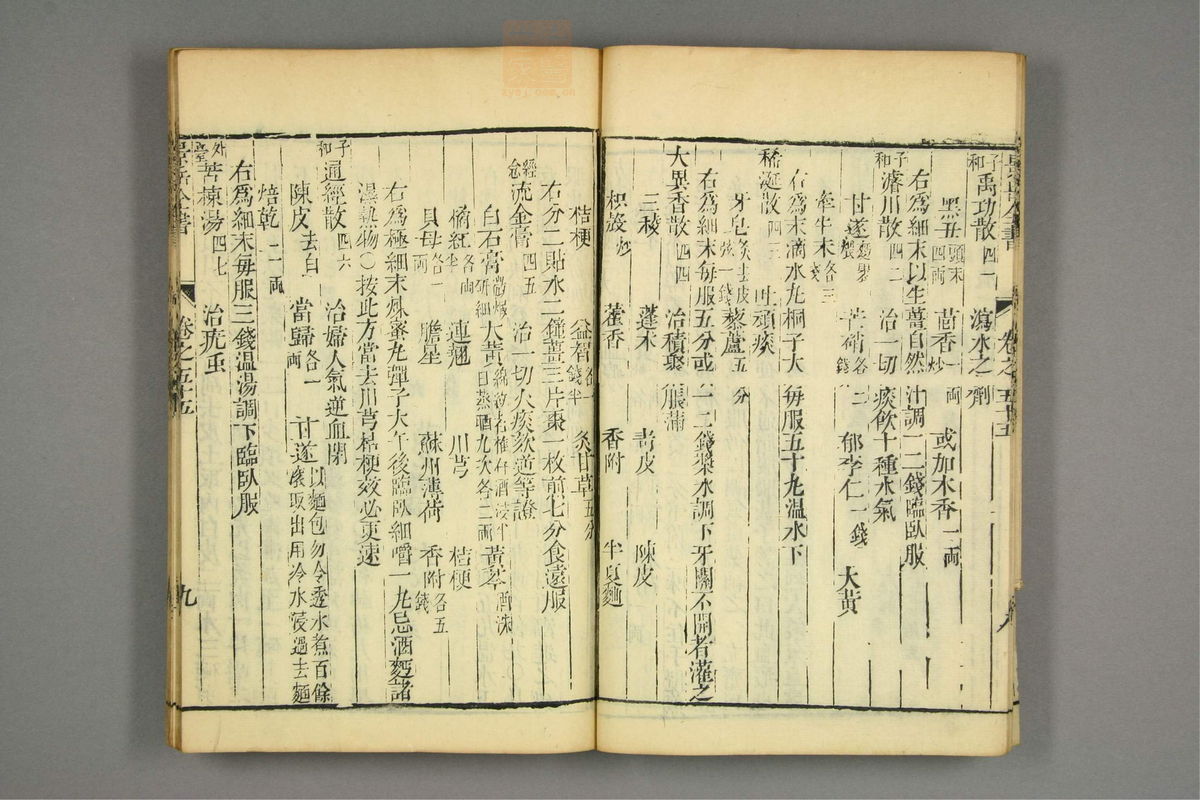 子和禹功散四一　瀉水之劑
黑丑頭末四両　茴香炒一両　或加木香一両
右爲細末以生薑自然汁調一二錢臨臥服
子和濬川散四二　治一切痰飲十種水氣
甘遂麪裹煨　芒硝各二錢　郁李仁一錢　大黃
牽牛末各三錢
右爲末滴水丸桐子大每服五十丸温水下
稀涎散四三　吐頑痰
牙皂炙去皮弦一錢　藜蘆五分
右爲細末每服五分或一二錢漿水調下牙關不開者灌之
大異香散四四　治積聚脹滿
三稜　蓬朮　青皮　陳皮
枳殼炒　藿香　香附　半夏麯
桔梗　益智各一錢半　炙甘草五分
右分二貼水二鍾薑三片棗一枚煎七分食遠服
經驗流金膏四五　治一切火痰欬逆等證
白石膏微煆研細　大黃錦紋者佳好酒浸半日蒸晒九次各二両　黃芩酒洗
橘紅各両半　連翹　川芎　桔梗
貝母各一両　膽星　蘇州薄荷　香附各五錢
右爲極細末煉蜜丸彈子大午後臨臥細嚼一丸忌酒麪諸
濕熱物〇按此方當去川芎桔梗效必更速
子和通經散四六　治婦人氣逆血閉
陳皮去白　當歸各一両　甘遂以麵包勿令透水煮百餘滾取出用冷水浸過去麵
焙乾一両
右爲細末每服三錢温湯調下臨臥服
外臺苦楝湯四七　治疣虫
卷之五十五
九